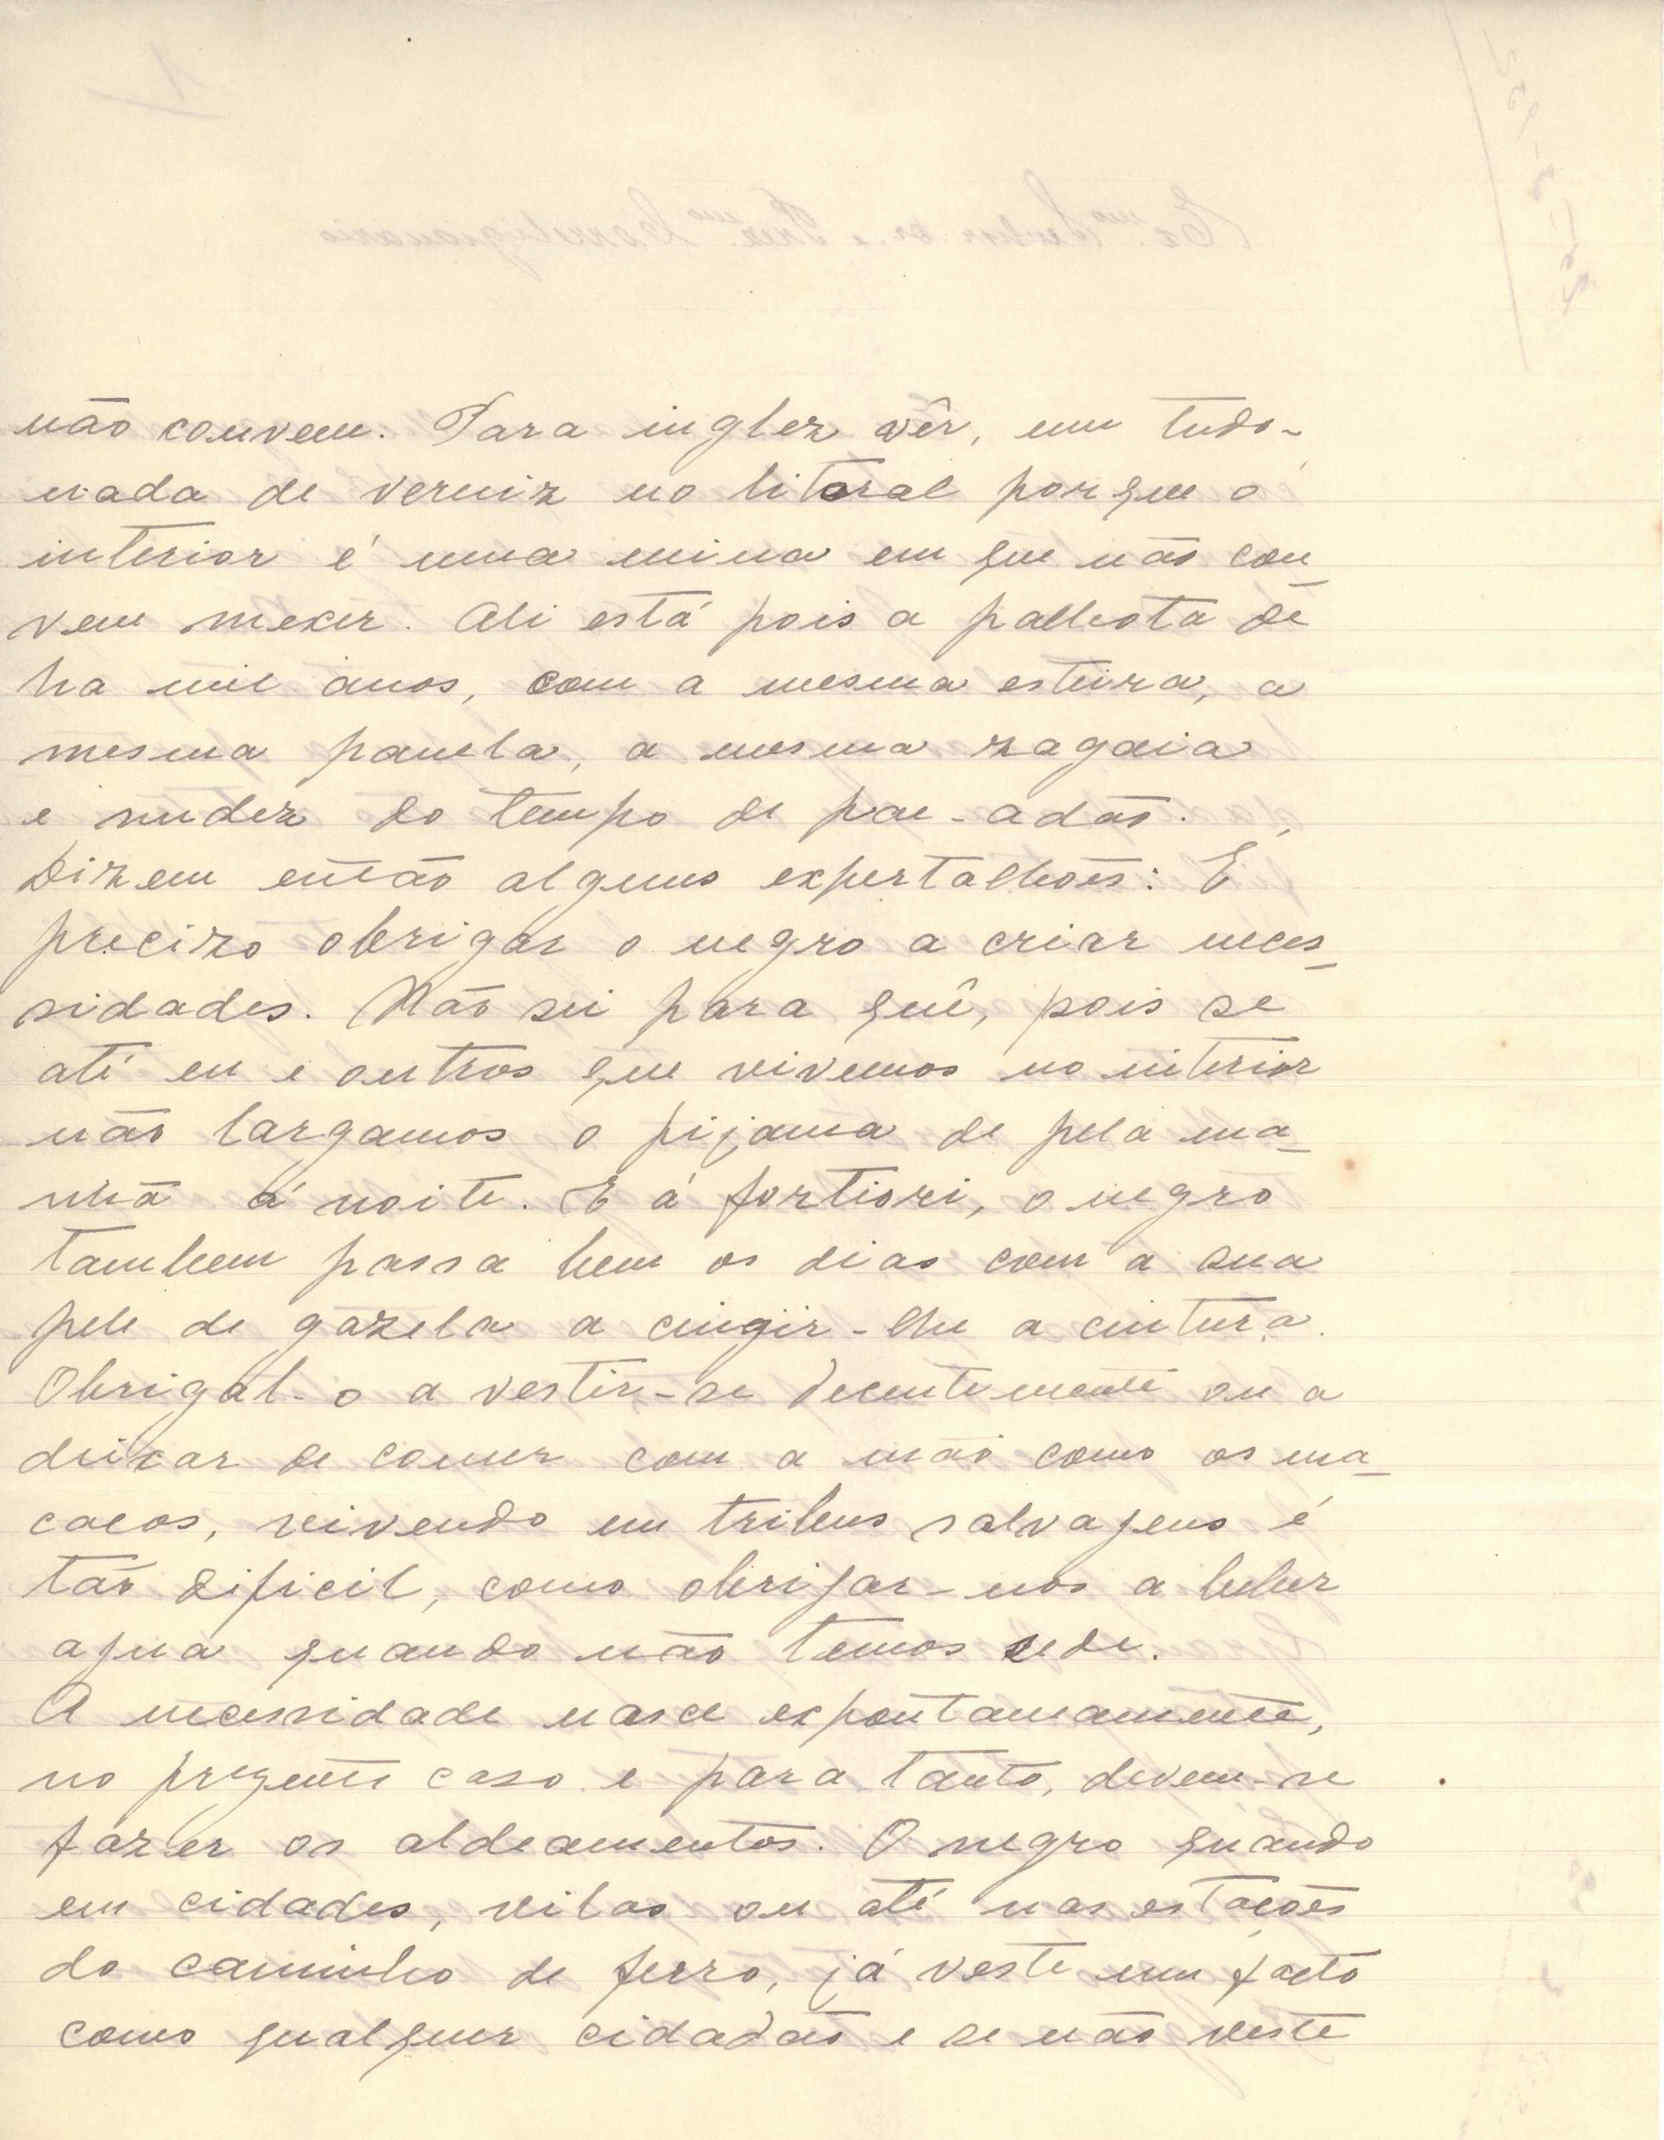 não convem. Para inglez vêr, um tudo-
nada de verniz no litoral porque o
interior é uma mina em que não con-
vem mexer. Ali está pois a palhota de
ha mil anos, com a mesma esteira, a
mesma panela, a mesma zagaia
e nudez do tempo de pae-adão.
Dizem então alguns expertalhões: É
precizo obrigar o negro a criar neces-
sidades. Não sei para quê, pois se
até eu e outros que vivemos no interior
não largamos o pijama de pela ma-
nhã á noite. E á fortiori, o negro
tambem passa bem os dias com a sua
pele de gazela a cingir-lhe a cintura.
Obrigal-o a vestir-se decentemente ou a
deixar de comer com a mão como os ma-
cacos, vivendo em tribus salvagens é
tão dificil, como obrigar-nos a beber
agua quando não temos sede.
A necessidade nasce expontaneamente,
no prezente caso e para tanto, devem-se
fazer os aldeamentos. O negro quando
em cidades, vilas ou até nas estações
do caminho de ferro, já veste um facto
como qualquer cidadão e se não veste